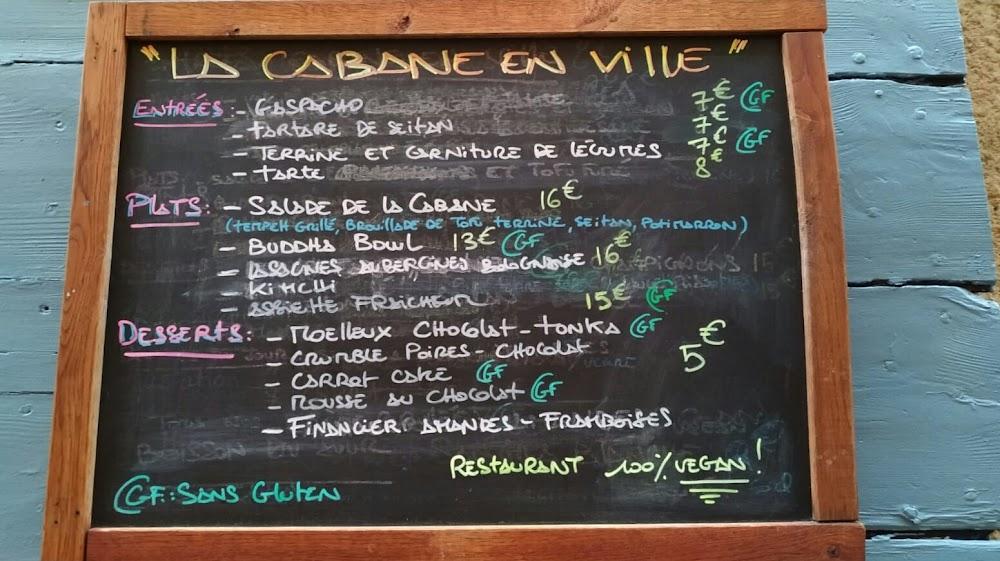 "LA CABANE EN VILLE"
ENTRÉES : - GASPACHO 7€ GF
- TARTARE DE SEITAN 7€
- TERRINE ET GARNITURE DE LÉGUMES 7€ GF
- TARTE 8€
PLATS : - SALADE DE LA CABANE 16€
(TEMPEH GRILLÉ, BROUILLADE DE TOFU, TERRINE, SEITAN, POTIMARRON)
- BUDDHA BOWL 13€ GF
- LASAGNES AUBERGINES BOLOGNAISE 16€
- KIMCHI
- ASSIETTE FRAICHEUR 15€ GF
DESSERTS : - MOELLEUX CHOCOLAT - TONKA GF
- CRUMBLE POIRES - CHOCOLAT 5€
- CARROT CAKE GF
- MOUSSE AU CHOCOLAT GF
- FINANCIER AMANDES - FRAMBOISES
RESTAURANT 100% VEGAN !
GF : SANS GLUTEN